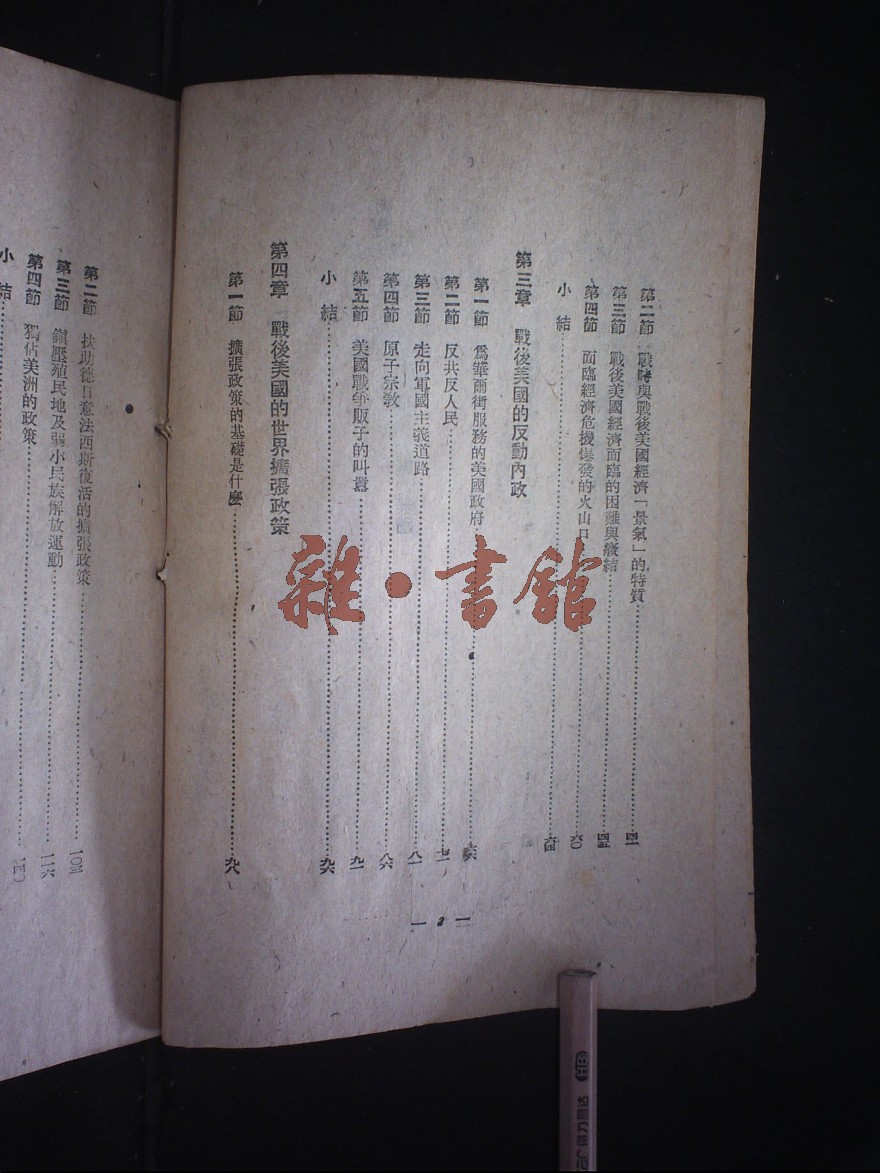 第二節 戰時與戰後美國經濟「景氣」的特質……四一
第三節 戰後美國經濟面臨的困難與癥結……四五
第四節 面臨經濟危機爆發的火山口……六〇
小 結……六四
第三章 戰後美國的反動內政
第一節 爲華爾街服務的美國政府……六六
第二節 反共反人民……七二
第三節 走向軍國主義道路……八一
第四節 原子宗教……八六
第五節 美國戰爭販子的叫囂……九一
小 結……九六
第四章 戰後美國的世界擴張政策
第一節 擴張政策的基礎是什麼……九八
— 2 —
第二節 扶助德日意法西斯復活的擴張政策……一〇三
第三節 鎮壓殖民地及弱小民族解放運動……一一六
第四節 獨佔美洲的政策……一四〇
小 結……
雜·書館
HB
得力